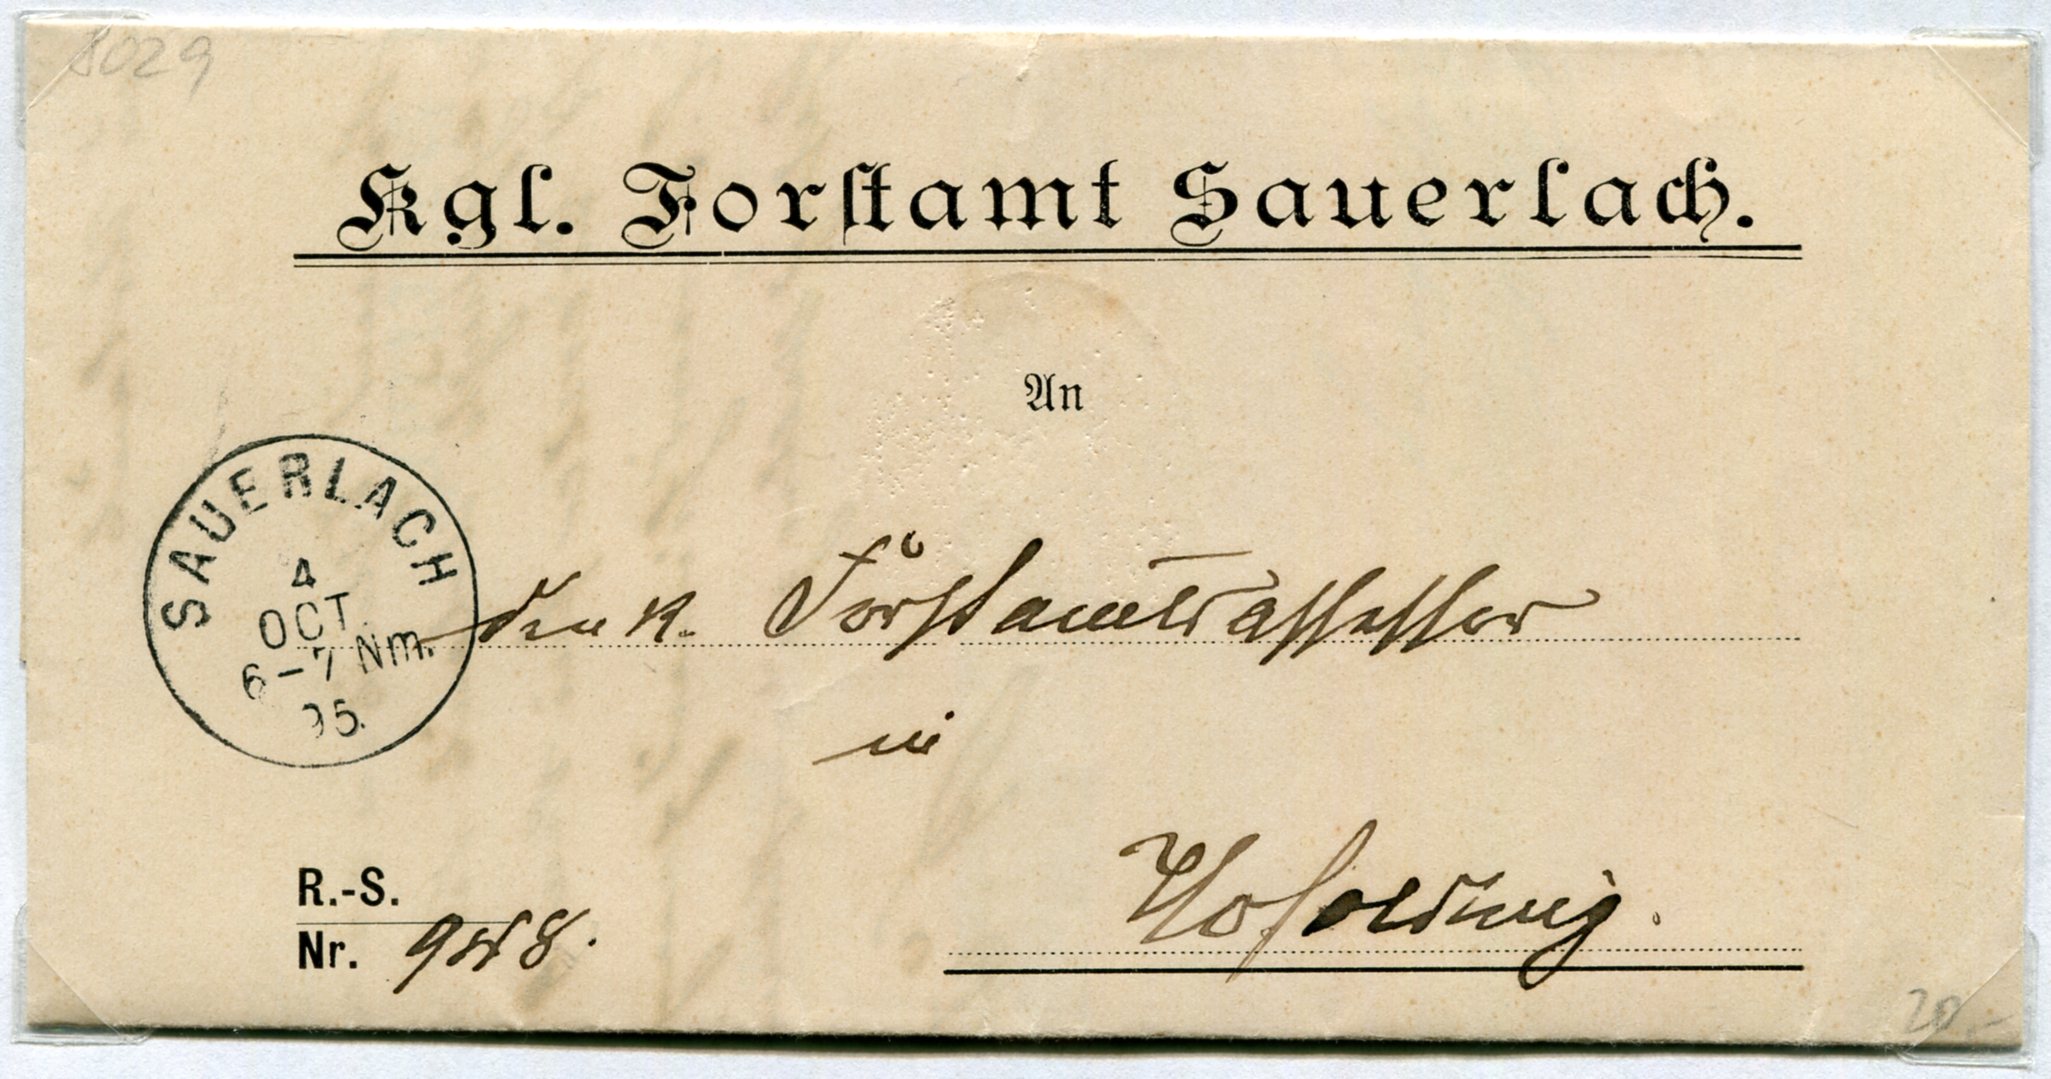 8029
Kgl. Forstamt Sauerlach.
An
SAUERLACH
4
OCT.
6-7 Nm.
95.
den k. Forstamtsassessor
in
Hofolding.
R.-S.
Nr. 948.
20.-